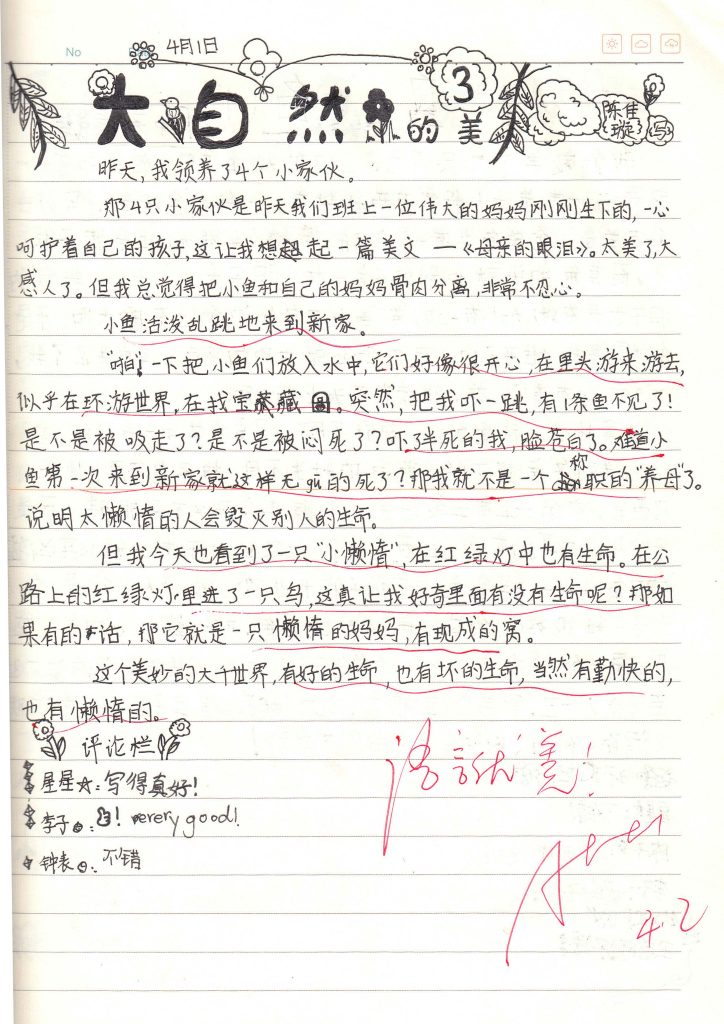 No
4月1日
大自然的美 3
陈佳璇 写
昨天，我领养了4个小家伙。
那4只小家伙是昨天我们班上一位伟大的妈妈刚刚生下的，一心
呵护着自己的孩子，这让我想起一篇美文—《母亲的眼泪》。太美了，大
感人了。但我总觉得把小鱼和自己的妈妈骨肉分离，非常不忍心。
小鱼活泼乱跳地来到新家。
"啪"一下把小鱼们放入水中，它们好像很开心，在里头游来游去，
似乎在环游世界，在找宝藏图。突然，把我吓一跳，有1条鱼不见了！
是不是被吸走了？是不是被闷死了？吓了半死的我，脸苍白了。难道小
鱼第一次来到新家就这样无gū的死了？那我就不是一个称职的"养母"了。
说明太懒惰的人会毁灭别人的生命。
但我今天也看到了一只"小懒惰"，在红绿灯中也有生命。在公
路上的红绿灯里进了一只鸟，这真让我好奇里面有没有生命呢？那如
果有的话，那它就是一只懒惰的妈妈，有现成的窝。
这个美妙的大千世界，有好的生命，也有坏的生命，当然有勤快的，
也有懒惰的。
评论栏
星星☆：写得真好！
李子：！very good！
钟表：不错
语言优美！
A++
4.2